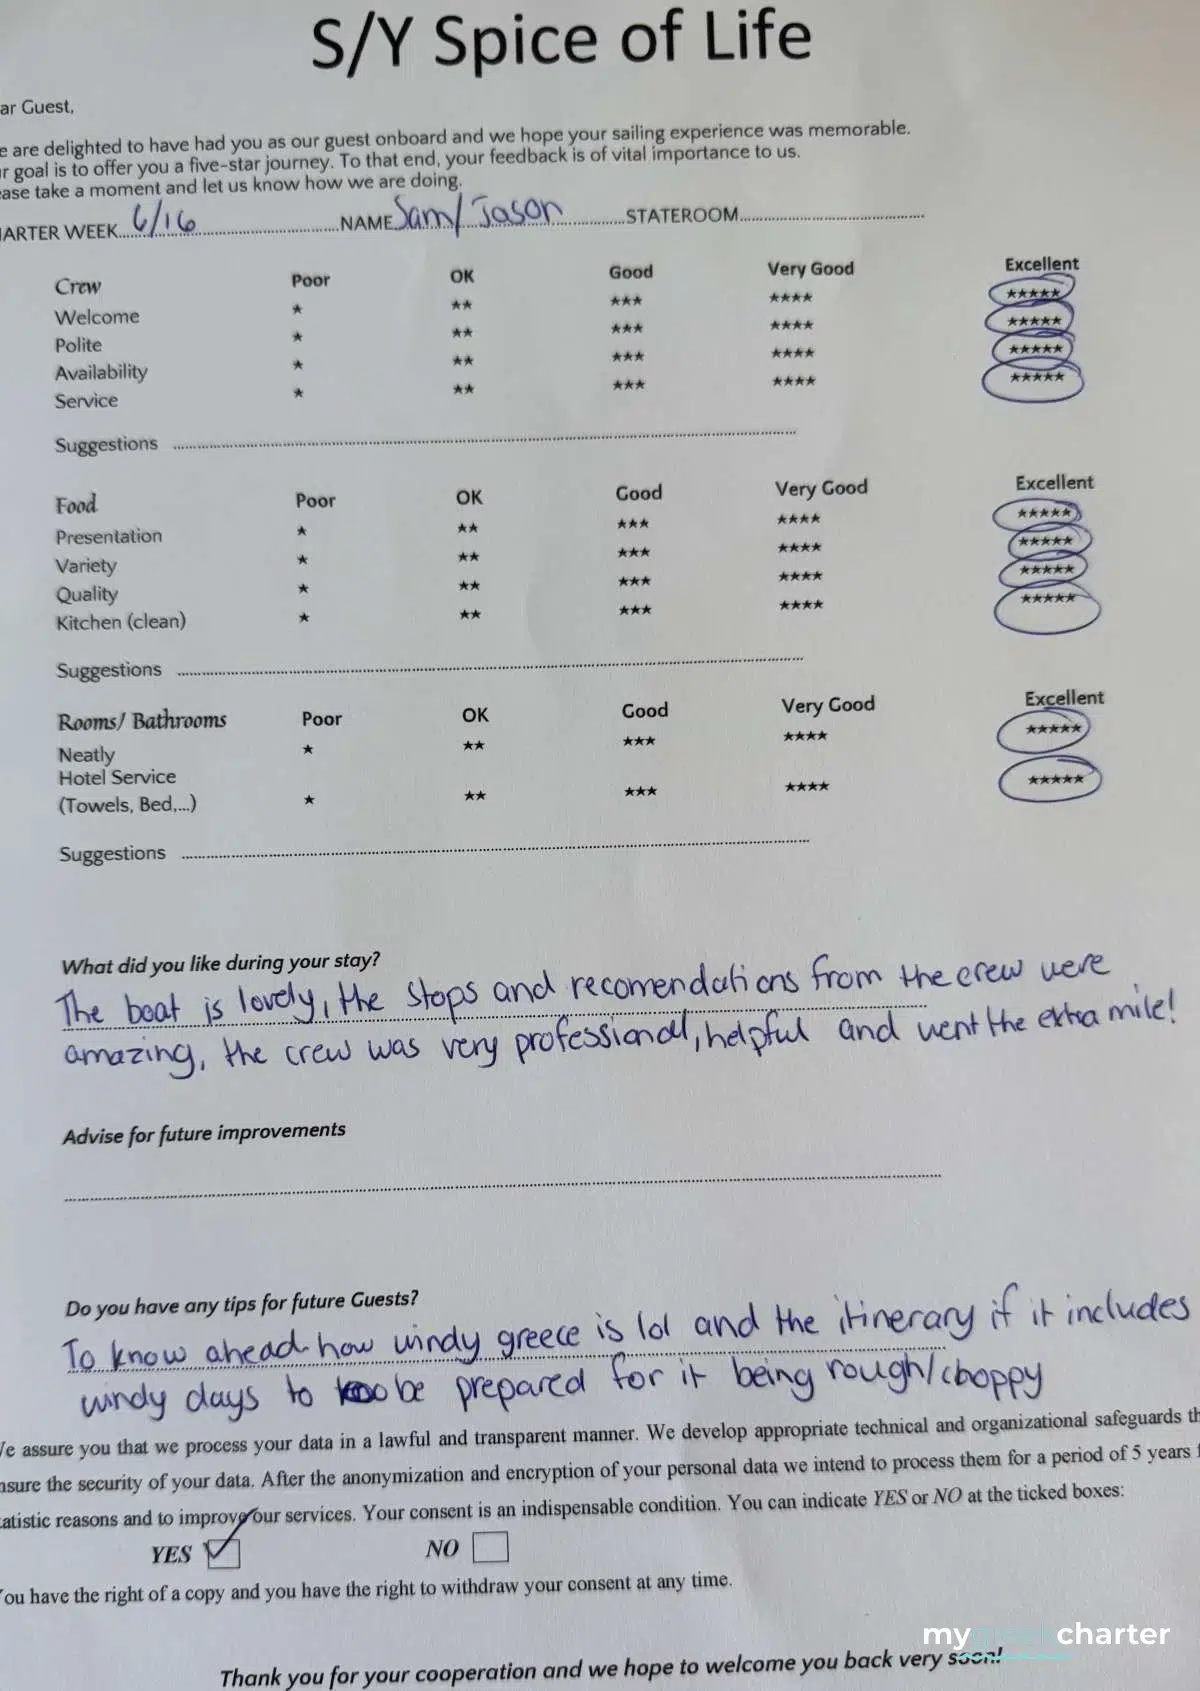 S/Y Spice of Life
ar Guest,
e are delighted to have had you as our guest onboard and we hope your sailing experience was memorable.
r goal is to offer you a five-star journey. To that end, your feedback is of vital importance to us.
ease take a moment and let us know how we are doing.
ARTER WEEK 6/16 NAME Sam/ Jason STATEROOM
Crew Poor OK Good Very Good Excellent
Welcome ★ ★★ ★★★ ★★★★ ★★★★★
Polite ★ ★★ ★★★ ★★★★ ★★★★★
Availability ★ ★★ ★★★ ★★★★ ★★★★★
Service ★ ★★ ★★★ ★★★★ ★★★★★
Suggestions
Food Poor OK Good Very Good Excellent
Presentation ★ ★★ ★★★ ★★★★ ★★★★★
Variety ★ ★★ ★★★ ★★★★ ★★★★★
Quality ★ ★★ ★★★ ★★★★ ★★★★★
Kitchen (clean) ★ ★★ ★★★ ★★★★ ★★★★★
Suggestions
Rooms/ Bathrooms Poor OK Good Very Good Excellent
Neatly ★ ★★ ★★★ ★★★★ ★★★★★
Hotel Service
(Towels, Bed,...) ★ ★★ ★★★ ★★★★ ★★★★★
Suggestions
What did you like during your stay?
The boat is lovely, the stops and recomendations from the crew were
amazing, the crew was very professional, helpful and went the extra mile!
Advise for future improvements
Do you have any tips for future Guests?
To know ahead how windy greece is lol and the itinerary if it includes
windy days to be prepared for it being rough/choppy
e assure you that we process your data in a lawful and transparent manner. We develop appropriate technical and organizational safeguards th
nsure the security of your data. After the anonymization and encryption of your personal data we intend to process them for a period of 5 years f
tatistic reasons and to improve our services. Your consent is an indispensable condition. You can indicate YES or NO at the ticked boxes:
YES NO
ou have the right of a copy and you have the right to withdraw your consent at any time.
mygreekcharter
Thank you for your cooperation and we hope to welcome you back very soon!